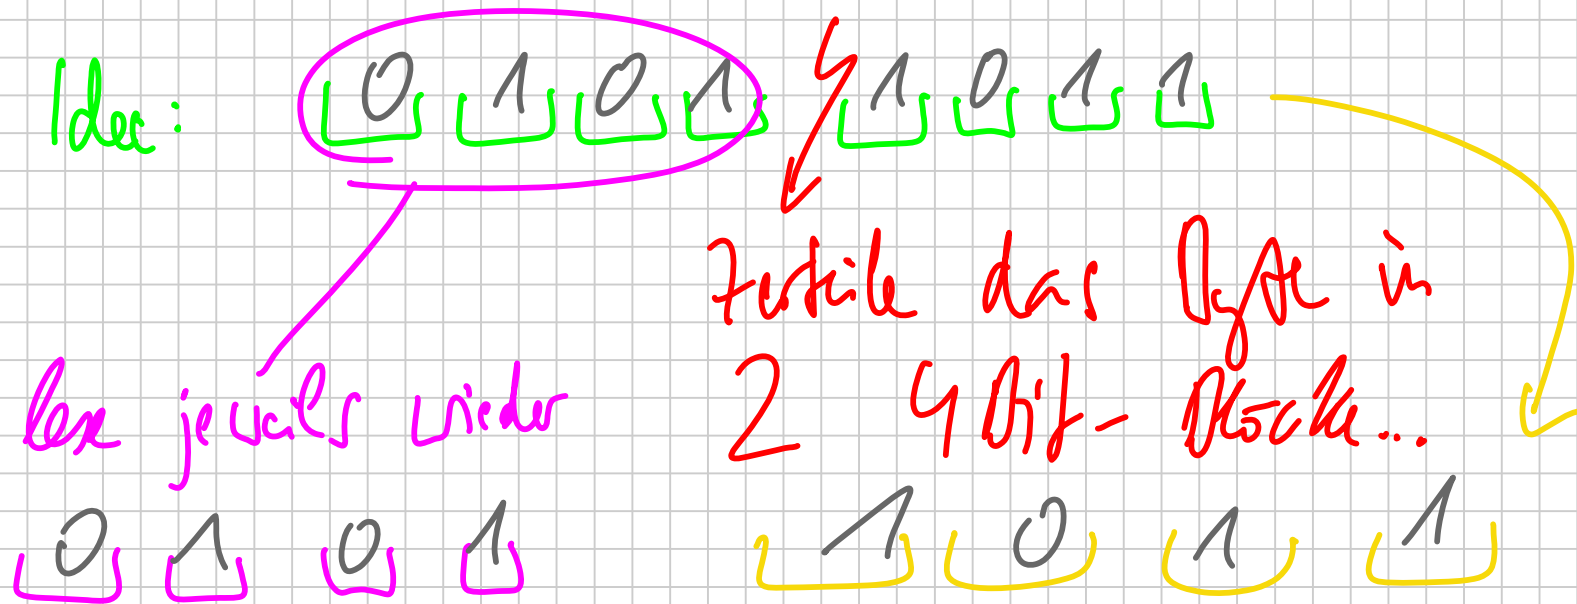 Idee: 0 1 0 1 1 0 1 1
Zerteile das Byte in
2 4Bit-Blöcke...
lese jeweils wieder
0 1 0 1 1 0 1 1